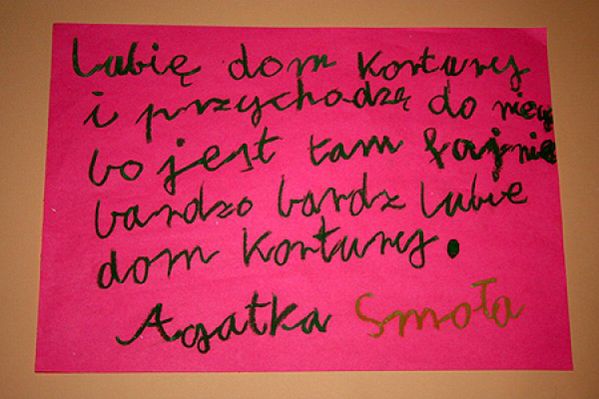 Lubię dom kortury
i przychodzę do niego
bo jest tam fajnie
bardzo bardz lubie
dom kortury.
Agatka Smoła